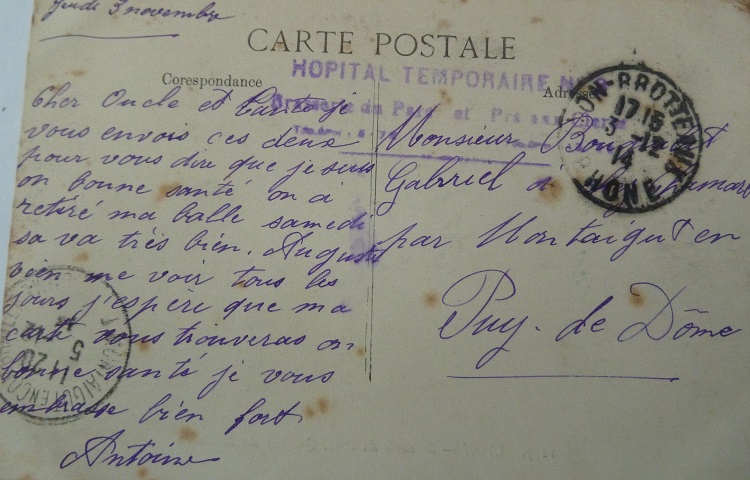 Jeudi 3 novembre
CARTE POSTALE
Corespondance
Adresse
HOPITAL TEMPORAIRE
Cher Oncle et tante je
vous envois ces deux
pour vous dire que je suis
en bonne santé on a
retiré ma balle samedi
sa va très bien. Auguste
vien me voir tous les
jours j'espère que ma
carte vous trouveras en
bonne santé je vous
embrasse bien fort
Antoine
Monsieur
Gabriel
par Montaigut en
Puy-de Dôme
LYON-BROTTEAUX
17 15
3 -12
14
RHONE
MONTAIGUT-EN-COMBRAILLE
5